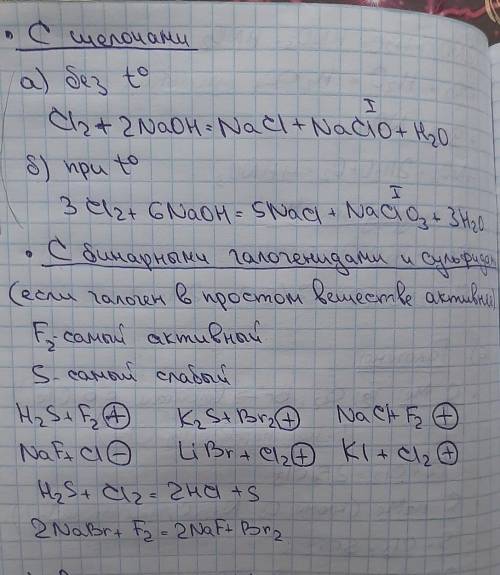 • С щелочами
а) без t°
I
Cl₂ + 2NaOH = NaCl + NaClO + H₂O
б) при t°
I
3Cl₂ + 6NaOH = 5NaCl + NaClO₃ + 3H₂O
• С бинарными галогенидами и сульфидам
(если галоген в простом веществе активн
F₂-самый активный
S-самый слабый
H₂S + F₂ ⊕ K₂S + Br₂ ⊕ NaCl + F₂ ⊕
NaF + Cl ⊖ LiBr + Cl₂ ⊕ KI + Cl₂ ⊕
H₂S + Cl₂ = 2HCl + S
2NaBr + F₂ = 2NaF + Br₂